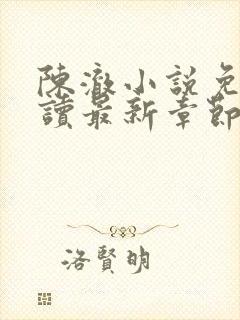 陳澈小說免
讀最新章節
洛賢明